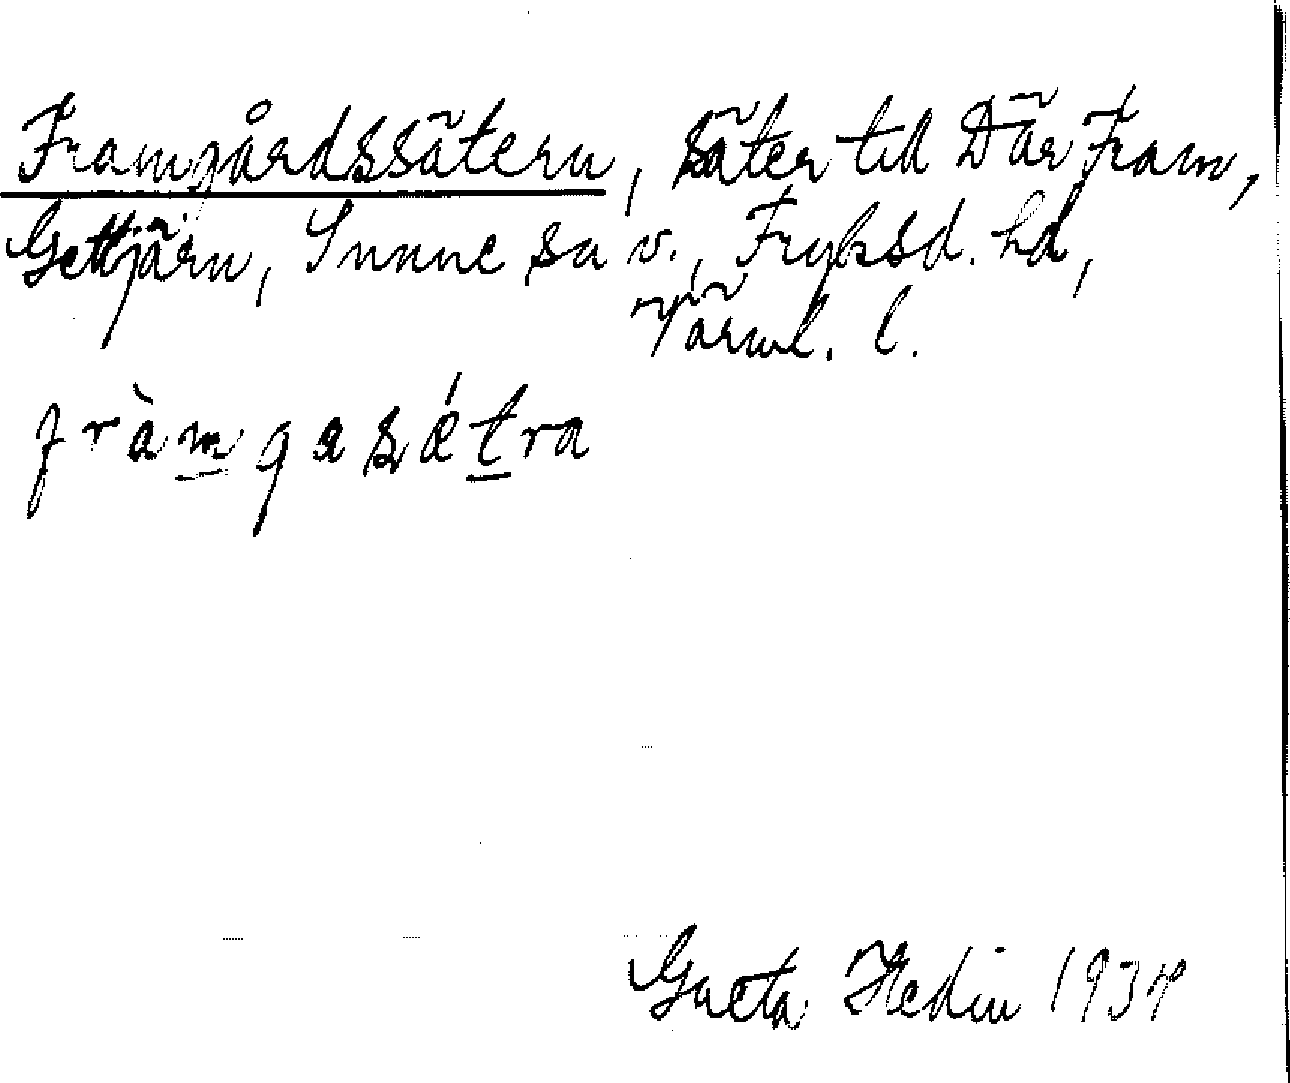 Framgårdssätern, säter till Där Fram,
Gettjärn, Sunne sn v., Fryksd. hd,
Värml. l.
fràmgasǽtra
Greta Hedin 1934